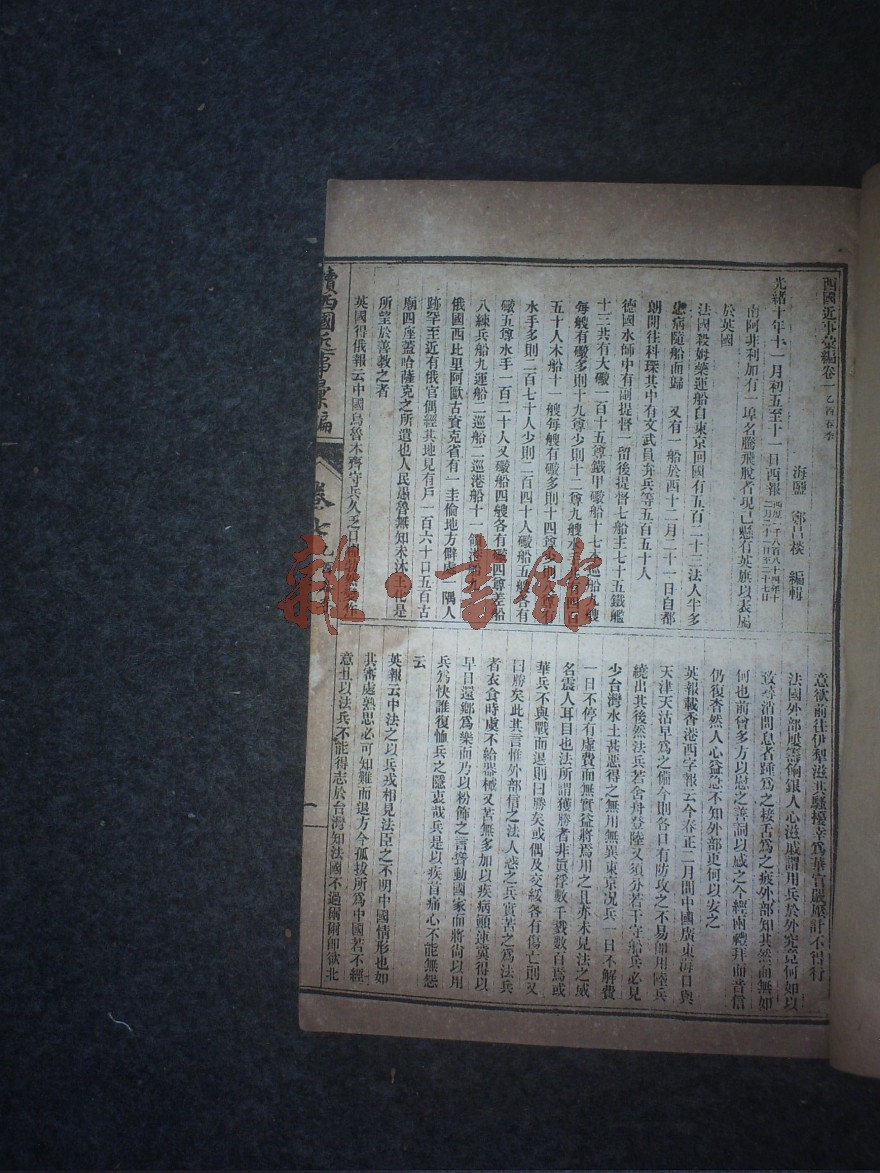 西國近事彙編卷一 乙酉春季
海鹽 鄭昌棪 編輯
光緒十年十一月初五至十一日西報 西歷一千八百八十四年十二月二十一日至二十七日
南阿非利加有一埠名騰飛脫者現已懸有英旗以表屬
於英國
法國殺姆藥運船自東京回國有五百二十三法人半多
患病隨船而歸 又有一船於西十二月二十一日自都
朗開往科琛其中有文武員弁兵等五百五十人
德國水師中有副提督一留後提督七船主七十五鐵艦
十三共有大礮一百十五尊鐵甲礮船十七
每艘有礮多則十九尊少則十二尊九艘
五十人木船十一艘每艘有礮多則十四尊
水手多則二百七十人少則二百四十人礮船五艘各有
礮五尊水手一百二十人又礮船四艘各有礮四尊差船
八練兵船九運船二巡船二巡港船十一
俄國西比里阿歐古賚克省有一圭倫地方僻一隅人
跡罕至近有俄官偶經其地見有戶一百六十口五百古
廟四座蓋哈薩克之所遺也人民愚魯無知未沐王化是
所望於善教之者
英國得俄報云中國烏魯木齊守兵久乏口
意欲前往伊犁滋其騷擾幸爲華官嚴厲計不得行
法國外部屢籌備銀人心滋戚謂用兵於外究竟何如以
致尋消問息者踵爲之接舌爲之疲外部知其然而無如
何也前曾多方以慰之善詞以感之今經兩禮拜而音信
仍復杳然人心益急不知外部更何以安之
英報載香港西字報云今春正二月間中國廣東海口與
天津大沽早爲之備今則各口有防攻之不易卽用陸兵
繞出其後然法兵若舍舟登陸又須分若干守船兵必見
少台灣水土甚惡得之無用無異東京况兵一日不解費
一日不停有虛費而無實益將焉用之且亦未見法之威
名震人耳目也法所謂獲勝者非真俘數千戮數百焉或
華兵不與戰而退則曰勝矣或偶及交綏各有傷亡則又
曰勝矣此其言惟外部信之法人惑之兵實苦之爲法兵
者衣食時虞不給器械又苦無多加以疾病顛連冀得以
早日還鄉爲樂而乃以粉飾之言聳動國家而將尙以用
兵爲快誰復恤兵之隱衷哉兵是以疾首痛心不能無怨
云
英報云中法之以兵戎相見法臣之不明中國情形也如
其審處熟思必可知難而退方今孤拔所爲中國若不經
意且以法兵不能得志於台灣知法國不過爾爾卽欲北
續西國近事彙編
卷七
一
雜·書館